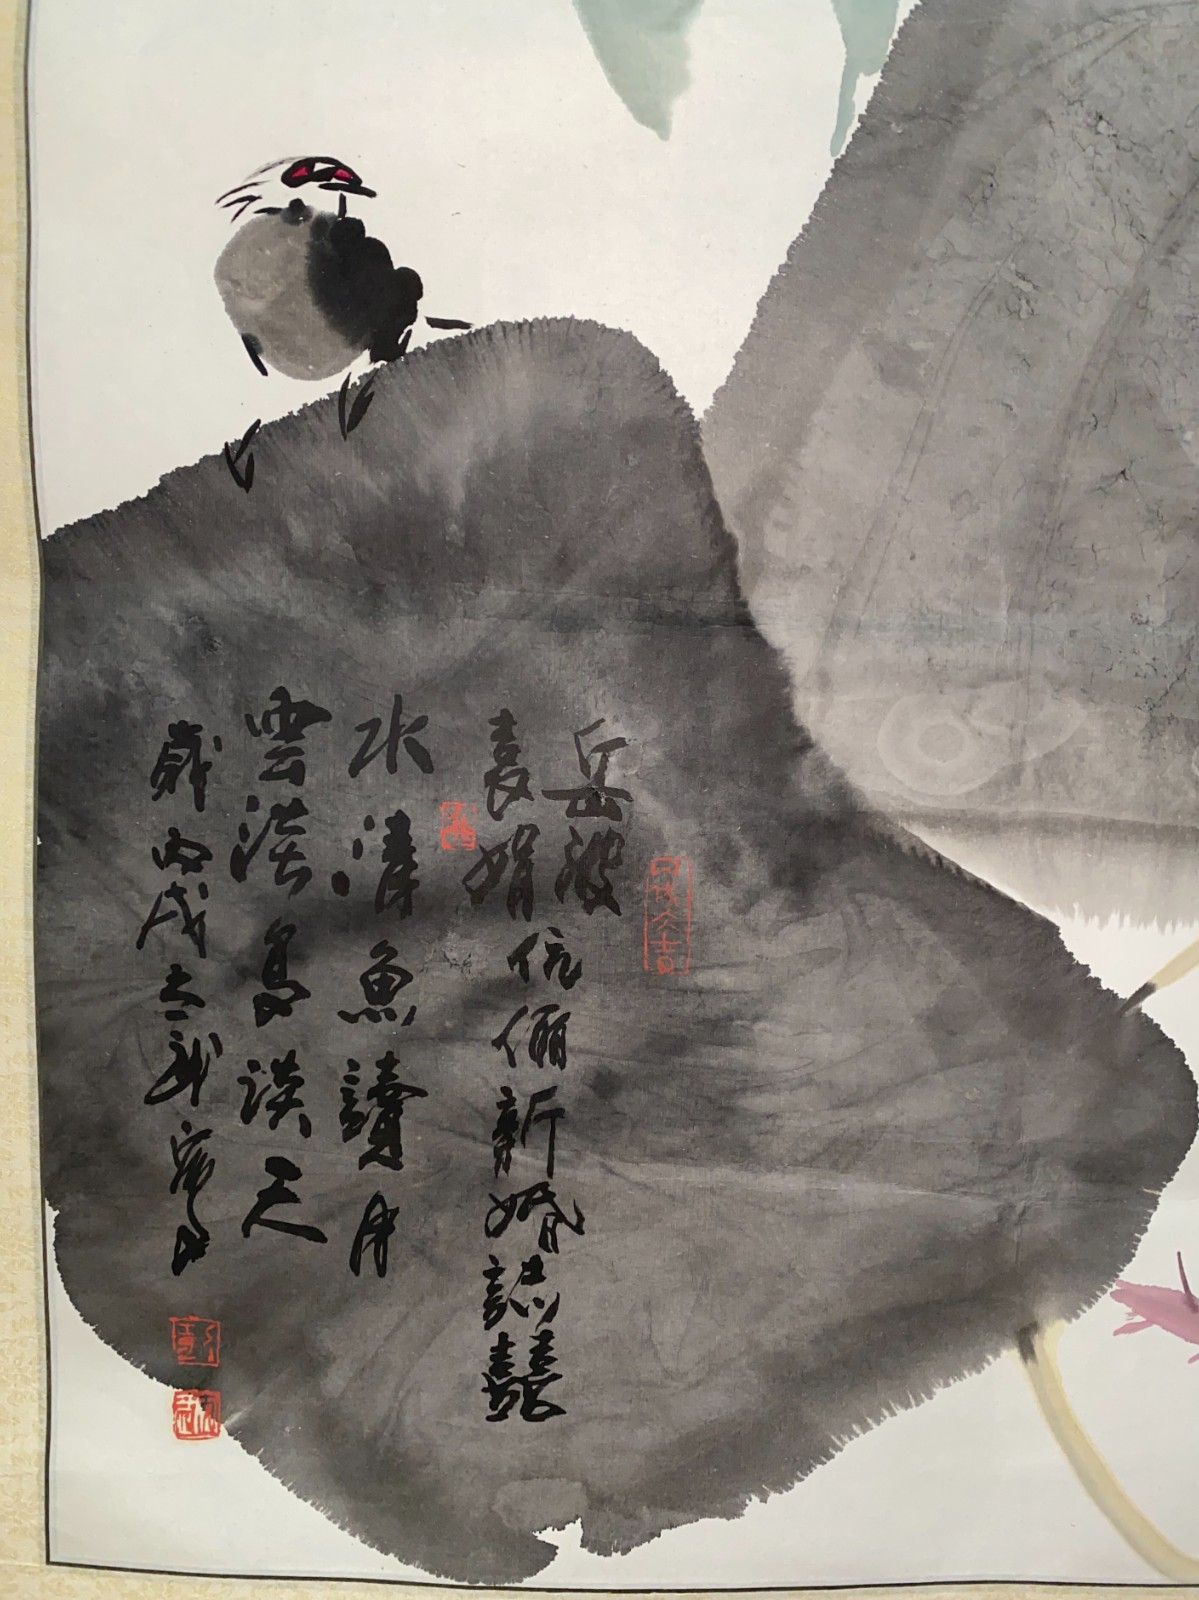 岳波
袁娟伉儷新婚誌囍
水清魚讀月
雲淡鳥談天
歲丙戌